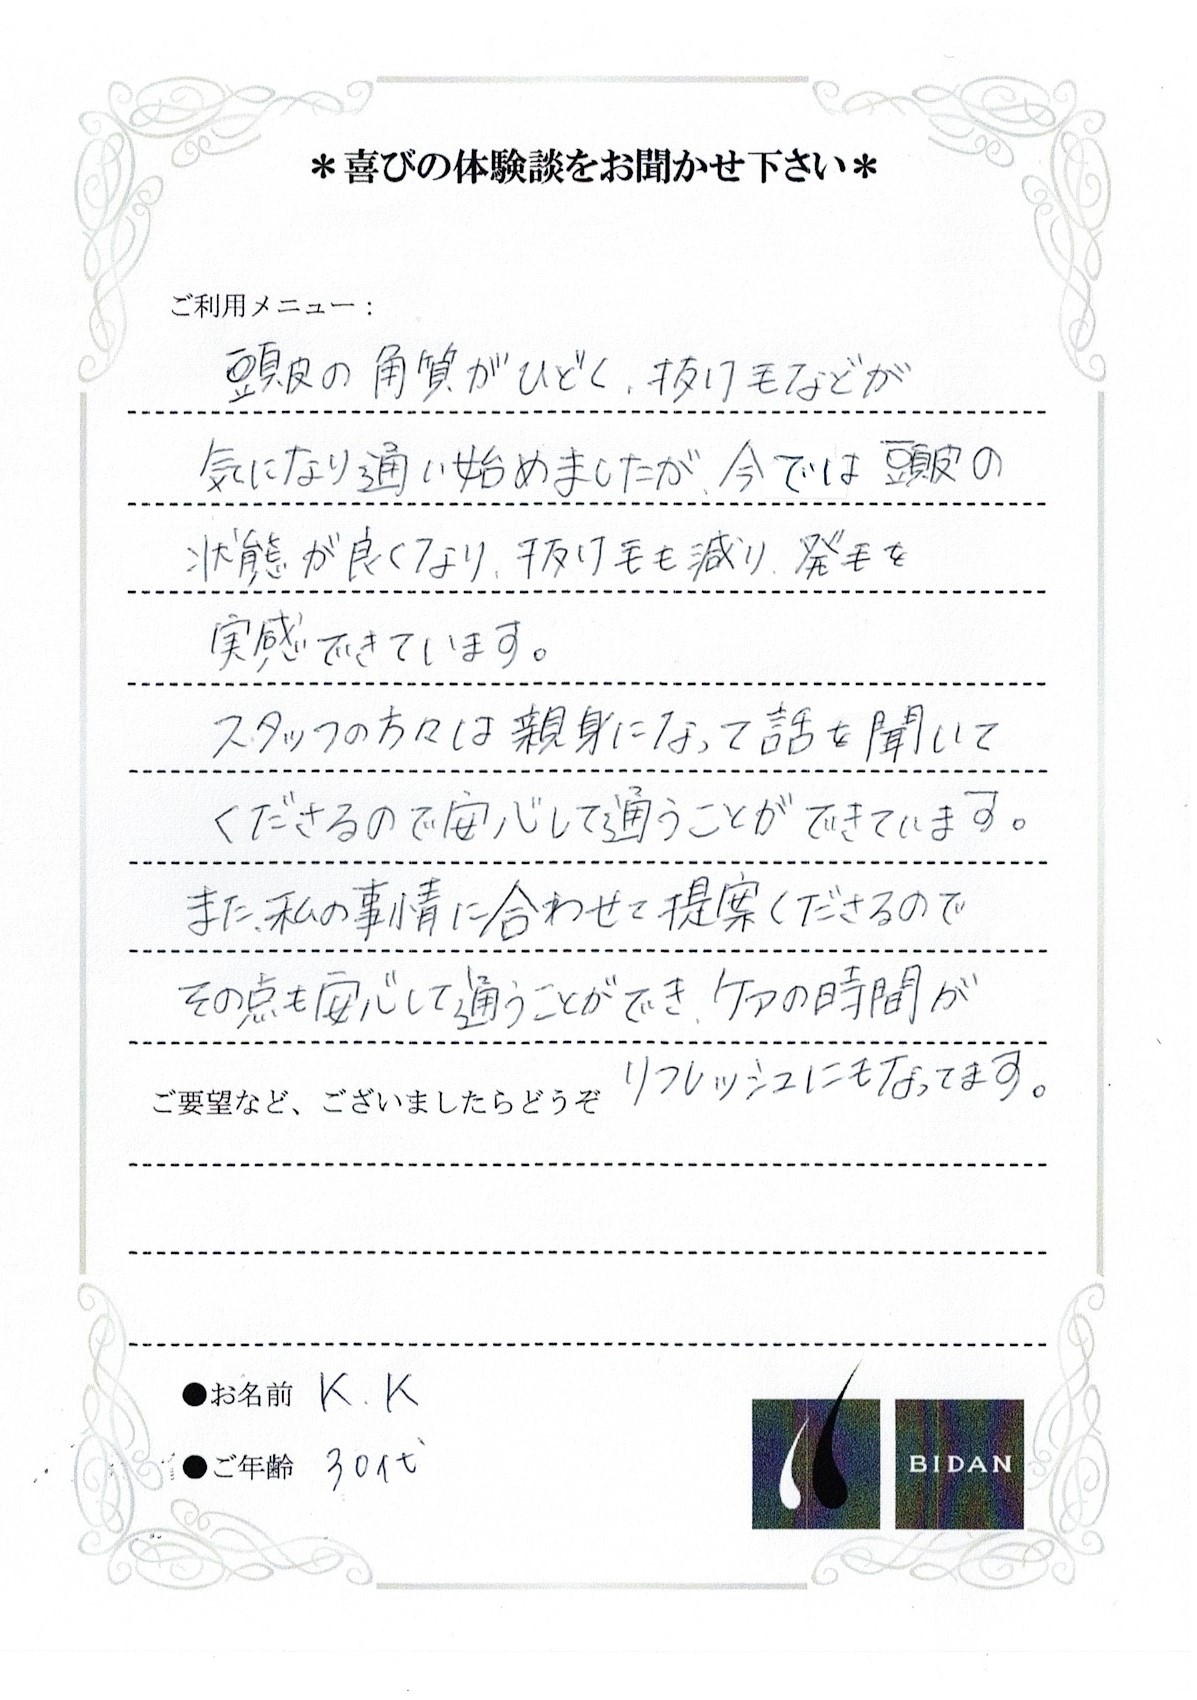 ＊喜びの体験談をお聞かせ下さい＊
ご利用メニュー：
頭皮の角質がひどく、抜け毛などが
気になり通い始めましたが、今では頭皮の
状態が良くなり、抜け毛も減り、発毛を
実感できています。
スタッフの方々は親身になって話を聞いて
くださるので安心して通うことができています。
また、私の事情に合わせて提案くださるので
その点も安心して通うことができ、ケアの時間が
リフレッシュにもなってます。
ご要望など、ございましたらどうぞ
●お名前 K.K
●ご年齢 30代
BIDAN